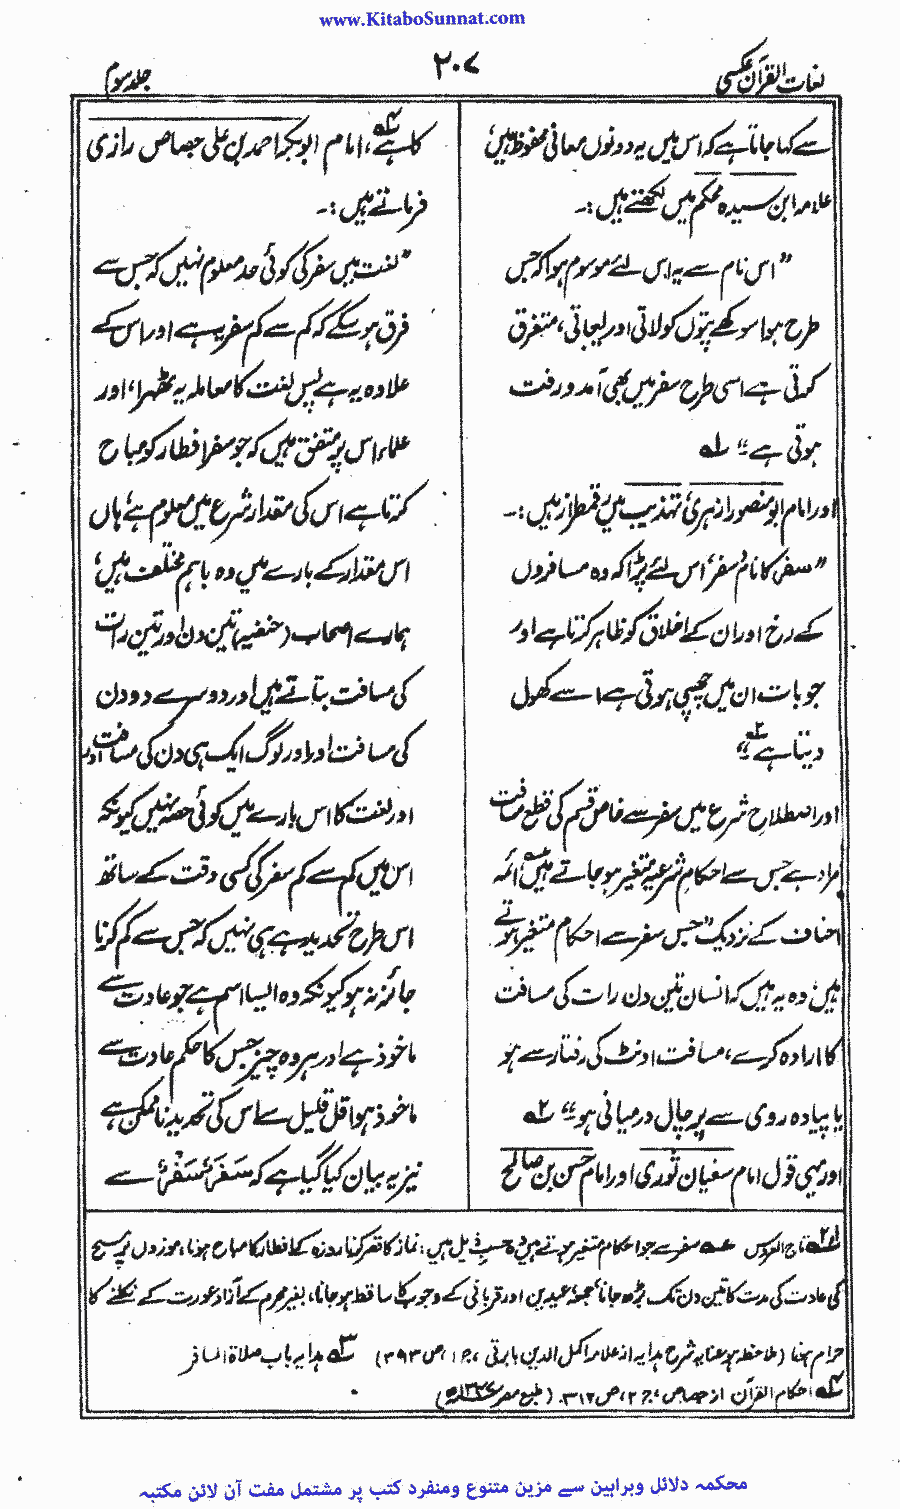 www.KitaboSunnat.com
لغات القرآن عکسی
۲۰۷
جلد سوم
سے کہا جاتا ہے کہ اس میں یہ دونوں معانی محفوظ ہیں،
علامہ ابن سیدہ محکم میں لکھتے ہیں :۔
"اس نام سے یہ اس لئے موسوم ہوا کہ جس
طرح ہوا سوکھے پتوں کو لاتی اور لیجاتی، متفرق
کرتی ہے اسی طرح سفر میں بھی آمد و رفت
ہوتی ہے" ۱ھ
اور امام ابو منصور ازہری، تہذیب میں رقمطراز ہیں :۔
"سفر کا نام سفر اس لئے پڑا کہ وہ مسافروں
کے رخ اور ان کے اخلاق کو ظاہر کرتا ہے اور
جو بات ان میں چھپی ہوتی ہے اسے کھول
دیتا ہے ۲ھ"
اور اصطلاح شرع میں سفر سے خاص قسم کی قطع مسافت
مراد ہے جس سے احکام شرعیہ متغیر ہو جاتے ہیں، ائمہ
احناف کے نزدیک "جس سفر سے احکام متغیر ہوتے
ہیں، وہ یہ ہیں کہ انسان تین دن رات کی مسافت
کا ارادہ کرے، مسافت اونٹ کی رفتار سے ہو
یا پیادہ روی سے پر چال درمیانی ہو" ۳ھ
اور یہی قول امام سفیان ثوری اور امام حسن بن صالح
کا ہے ۴ھ، امام ابوبکر احمد بن علی جصاص رازی
فرماتے ہیں :۔
"لغت میں سفر کی کوئی حد معلوم نہیں کہ جس سے
فرق ہو سکے کہ کم سے کم سفر یہ ہے اور اس کے
علاوہ یہ ہے پس لغت کا معاملہ یہ ٹھہرا، اور
علماء اس پر متفق ہیں کہ جو سفر افطار کو مباح
کرتا ہے اس کی مقدار شرع میں معلوم ہے، ہاں
اس مقدار کے بارے میں وہ باہم مختلف ہیں،
ہمارے اصحاب (حنفیہ) تین دن اور تین رات
کی مسافت بتاتے ہیں اور دوسرے دو دن
کی مسافت اور اور لوگ ایک ہی دن کی مسافت
اور لغت کا اس بارے میں کوئی حصہ نہیں کیونکہ
اس میں کم سے کم سفر کی کسی وقت کے ساتھ
اس طرح تحدید ہے ہی نہیں کہ جس سے کم کرنا
جائز نہ ہو کیونکہ وہ ایسا اسم ہے جو عادت سے
ماخوذ ہے اور ہر وہ چیز جس کا حکم عادت سے
ماخوذ ہو اقل قلیل سے اس کی تحدید ناممکن ہے
نیز یہ بیان کیا گیا ہے کہ سَفَرٌ سَفْرٌ سے
تاج العروس سفر سے جو احکام متغیر ہوتے ہیں وہ حسب ذیل ہیں : نماز کا قصر کرنا، روزہ کے افطار کا مباح ہونا، موزوں پر مسح
کی عادت کی مدت کا تین دن تک بڑھ جانا، جمعہ عیدین اور قربانی کے وجوب کا ساقط ہو جانا، بغیر محرم کے آزاد عورت کے نکلنے کا
حرام ہونا (ملاحظہ ہو عنایہ شرح ہدایہ از علامہ اکمل الدین بابرتی، ج ۱، ص ۳۹۳) ۳ھ ہدایہ باب صلاۃ المسافر
۴ھ احکام القرآن از جصاص، ج ۲، ص ۳۱۲. (طبع مصر
محکمہ دلائل وبراہین سے مزین متنوع ومنفرد کتب پر مشتمل مفت آن لائن مکتبہ